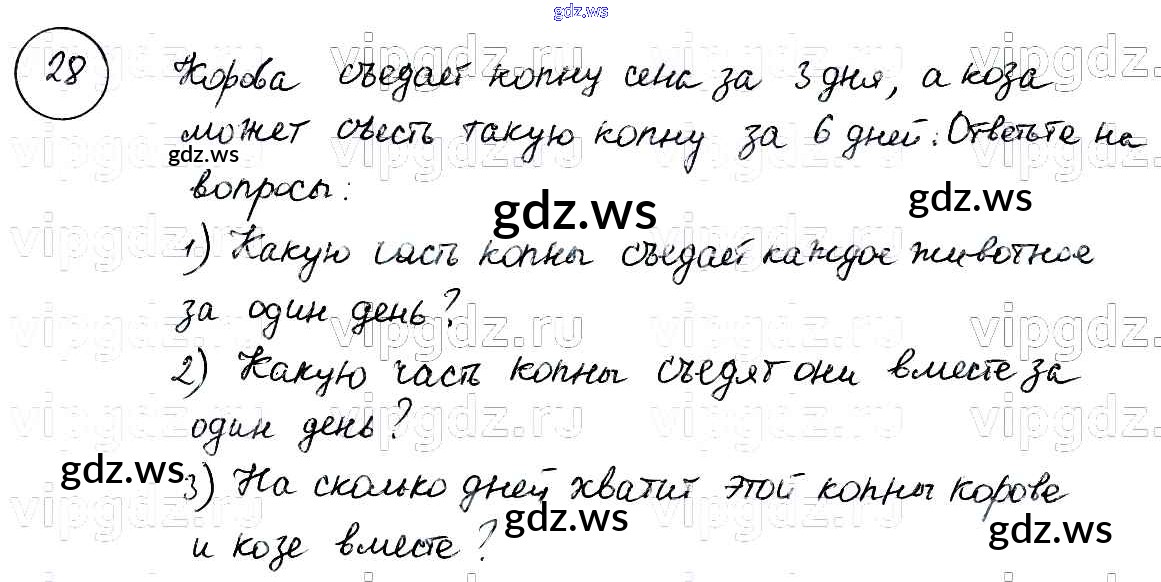 gdz.ws
28
Корова съедает копну сена за 3 дня, а коза
может съесть такую копну за 6 дней. Ответьте на
вопросы:
1) Какую часть копны съедает каждое животное
за один день?
2) Какую часть копны съедят они вместе за
один день?
3) На сколько дней хватит этой копны корове
и козе вместе?
gdz.ws
gdz.ws
gdz.ws
gdz.ws
gdz.ws
gdz.ws
vipgdz.ru
vipgdz.ru
vipgdz.ru
vipgdz.ru